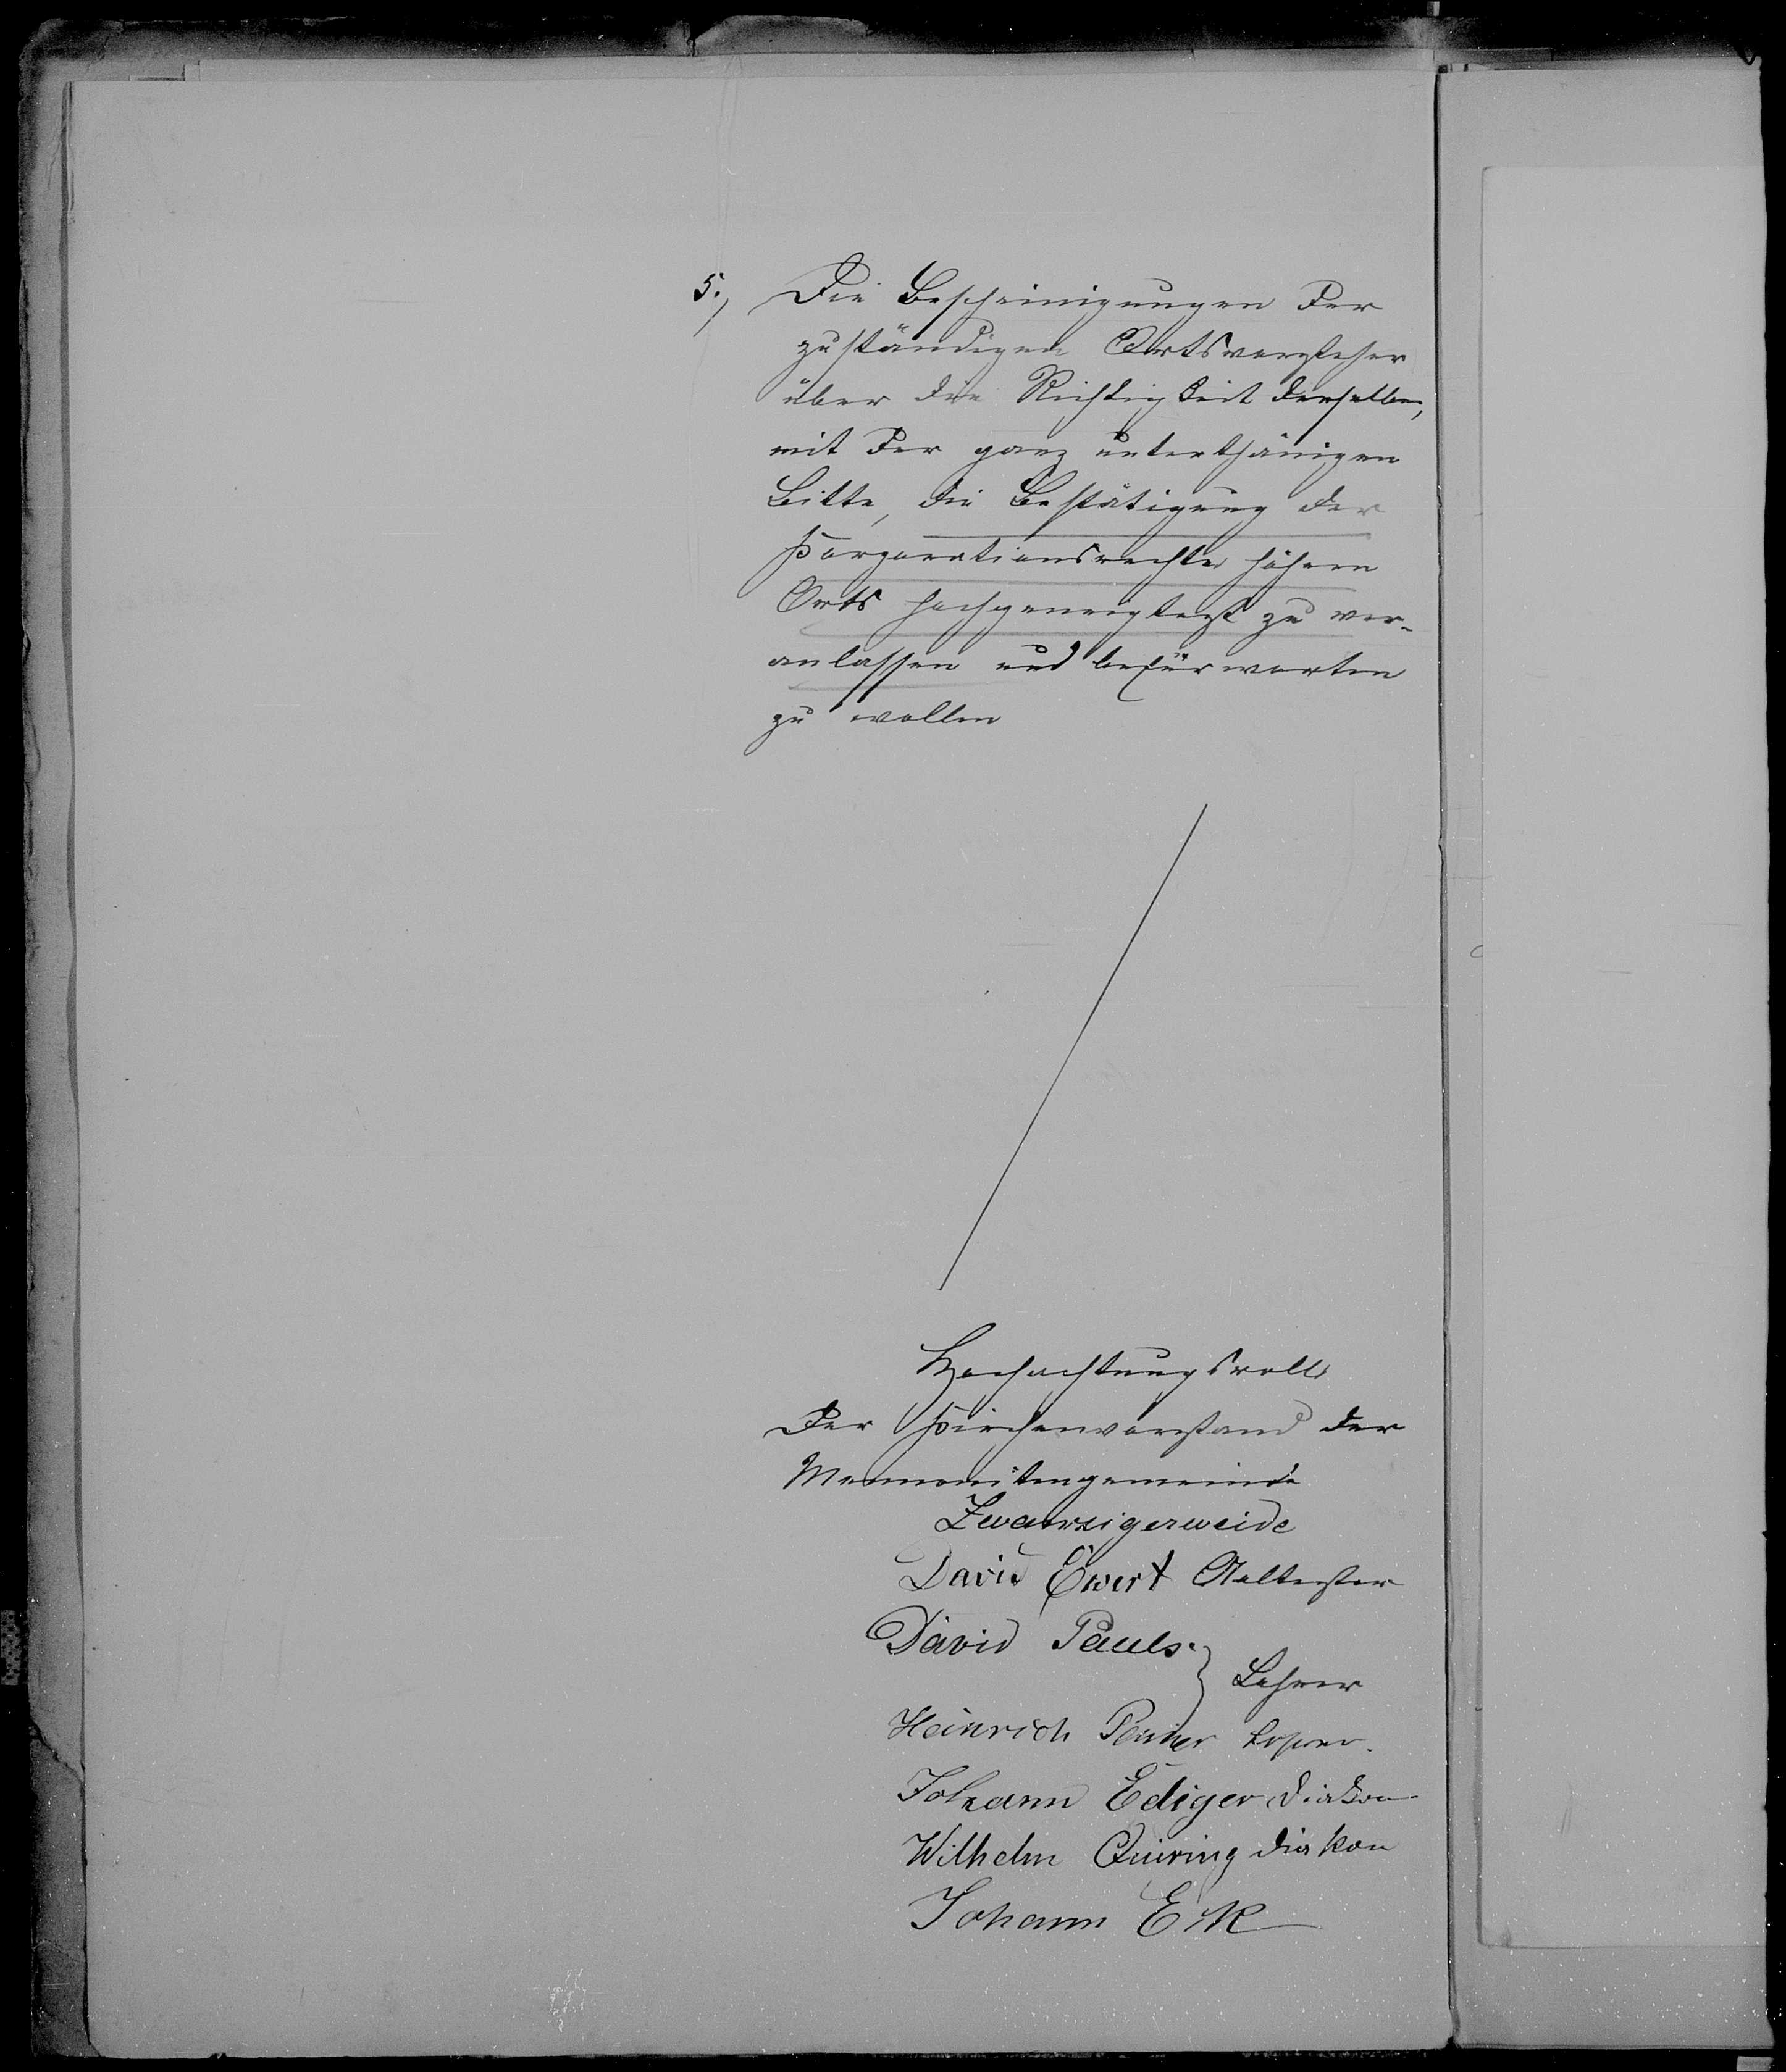 5., Die Bescheinigungen der
zuständigen Ortsvorsteher
über die Richtigkeit derselben,
mit der ganz unterthänigen
Bitte, die Bestätigung der
Korporationsrechte höhern
Orts hochgeneigtest zu ver-
anlassen und befürworten
zu wollen
Hochachtungsvoll
Der Kirchenvorstand der
Mennonitengemeinde
Zwanzigerweide
David Ewert Aeltester
David Pauls
} Lehrer
Heinrich Penner Lehrer.
Johann Ediger Diakon
Wilhelm Quiring Diakon
Johann